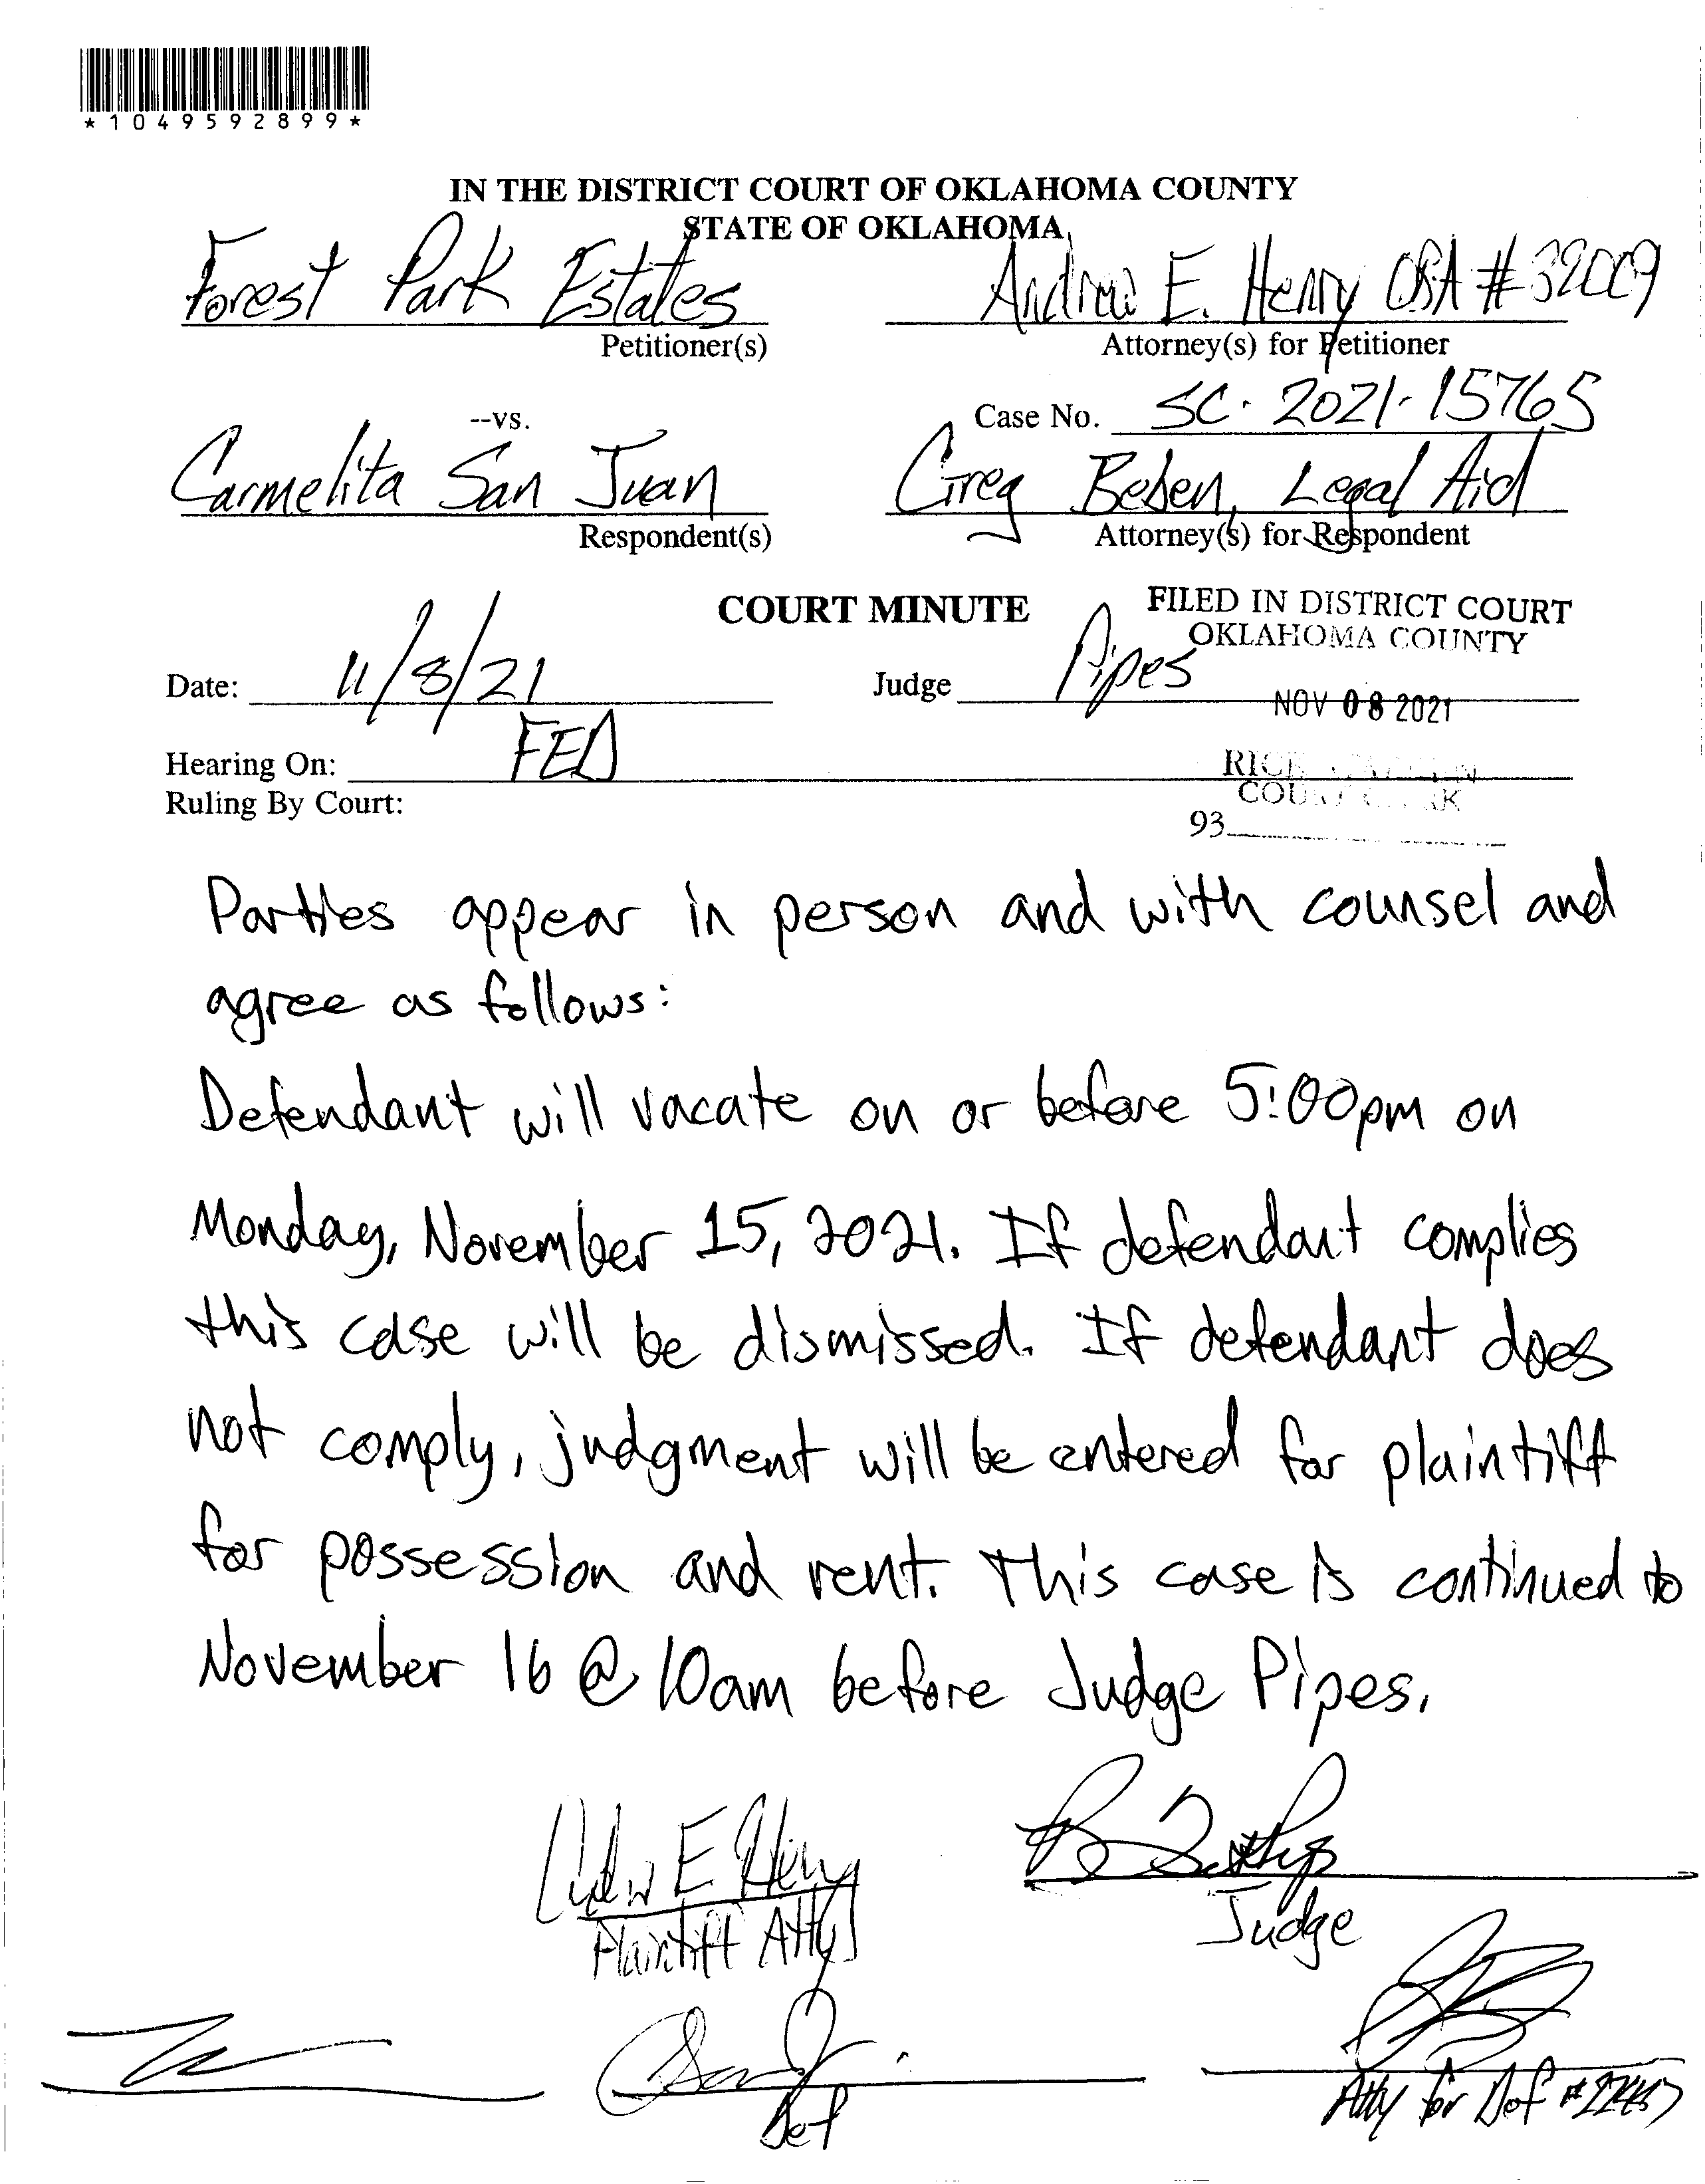 *1049592899*
IN THE DISTRICT COURT OF OKLAHOMA COUNTY
STATE OF OKLAHOMA
Forest Park Estates
Petitioner(s)
Andrew E. Henry OBA # 32009
Attorney(s) for Petitioner
--vs.
Case No. SC-2021-15765
Carmelita San Juan
Respondent(s)
Greg Beben, Legal Aid
Attorney(s) for Respondent
COURT MINUTE
FILED IN DISTRICT COURT
OKLAHOMA COUNTY
Date: 11/8/21
Judge Pipes
NOV 08 2021
Hearing On: FED
Ruling By Court:
COURT CLERK
93
Parties appear in person and with counsel and
agree as follows:
Defendant will vacate on or before 5:00pm on
Monday, November 15, 2021. If defendant complies
this case will be dismissed. If defendant does
not comply, judgment will be entered for plaintiff
for possession and rent. This case is continued to
November 16 @ 10am before Judge Pipes.
Andrew E Henry
Plaintiff Atty
Judge
Def
Atty for Def